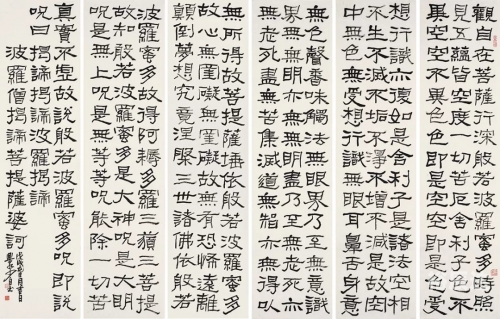 觀自在菩薩行深般若波羅蜜多時照
見五蘊皆空度一切苦厄舍利子色不
異空空不異色色即是空空即是色受
想行識亦復如是舍利子是諸法空相
不生不滅不垢不淨不增不減是故空
中無色無受想行識無眼耳鼻舌身意
無色聲香味觸法無眼界乃至無意識
界無無明亦無無明盡乃至無老死亦
無老死盡無苦集滅道無智亦無得以
無所得故菩提薩埵依般若波羅蜜多
故心無罣礙無罣礙故無有恐怖遠離
顛倒夢想究竟涅槃三世諸佛依般若
波羅蜜多故得阿耨多羅三藐三菩提
故知般若波羅蜜多是大神呪是大明
呪是無上呪是無等等呪能除一切苦
真實不虛故說般若波羅蜜多呪即說
呪曰揭諦揭諦波羅揭諦
波羅僧揭諦菩提薩婆訶